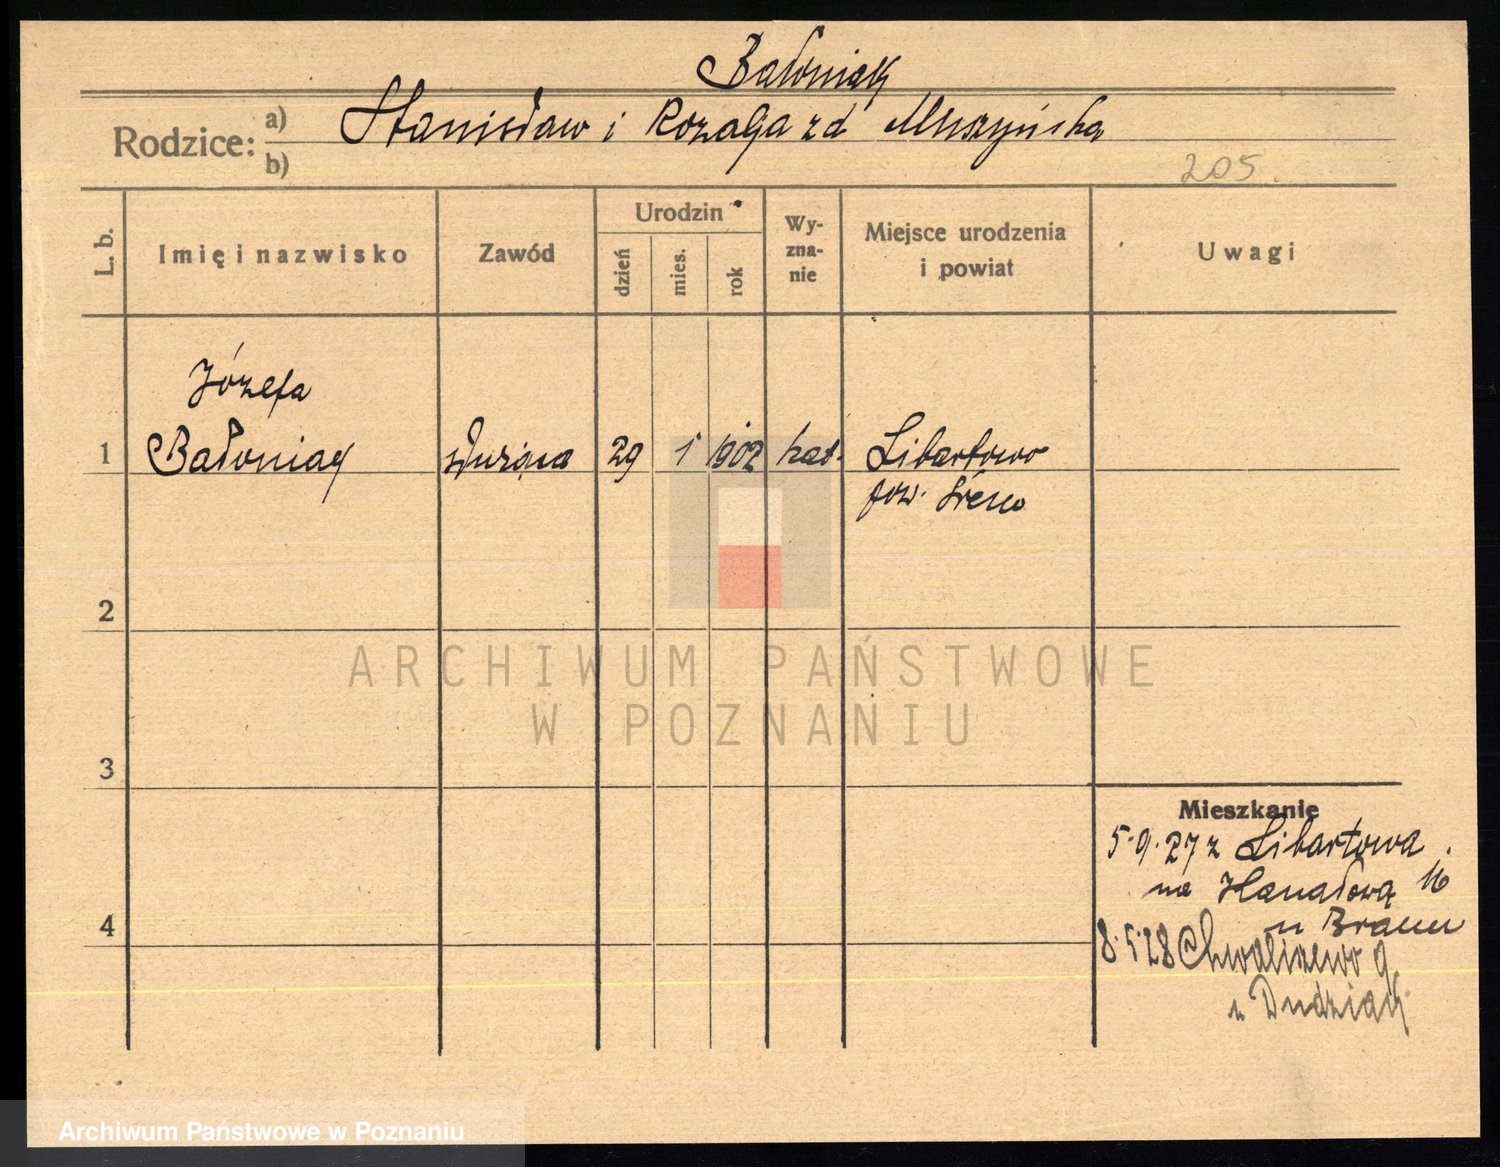 Bałoniak
Rodzice: a) Stanisław i Rozalja zd Muszyńska
b)
205.
L. b. Imię i nazwisko Zawód Urodzin dzień mies. rok Wyznanie Miejsce urodzenia i powiat Uwagi
Józefa
1 Bałoniak służąca 29 1 1902 kat. Libartowo
pow. Śrem
2
ARCHIWUM PAŃSTWOWE
W POZNANIU
3
Mieszkanie
5.9.27 z Libartowa
na Kanałową 16
4 u Braun
8.5.28 Chwaliszewo 9
u Dudziak
Archiwum Państwowe w Poznaniu